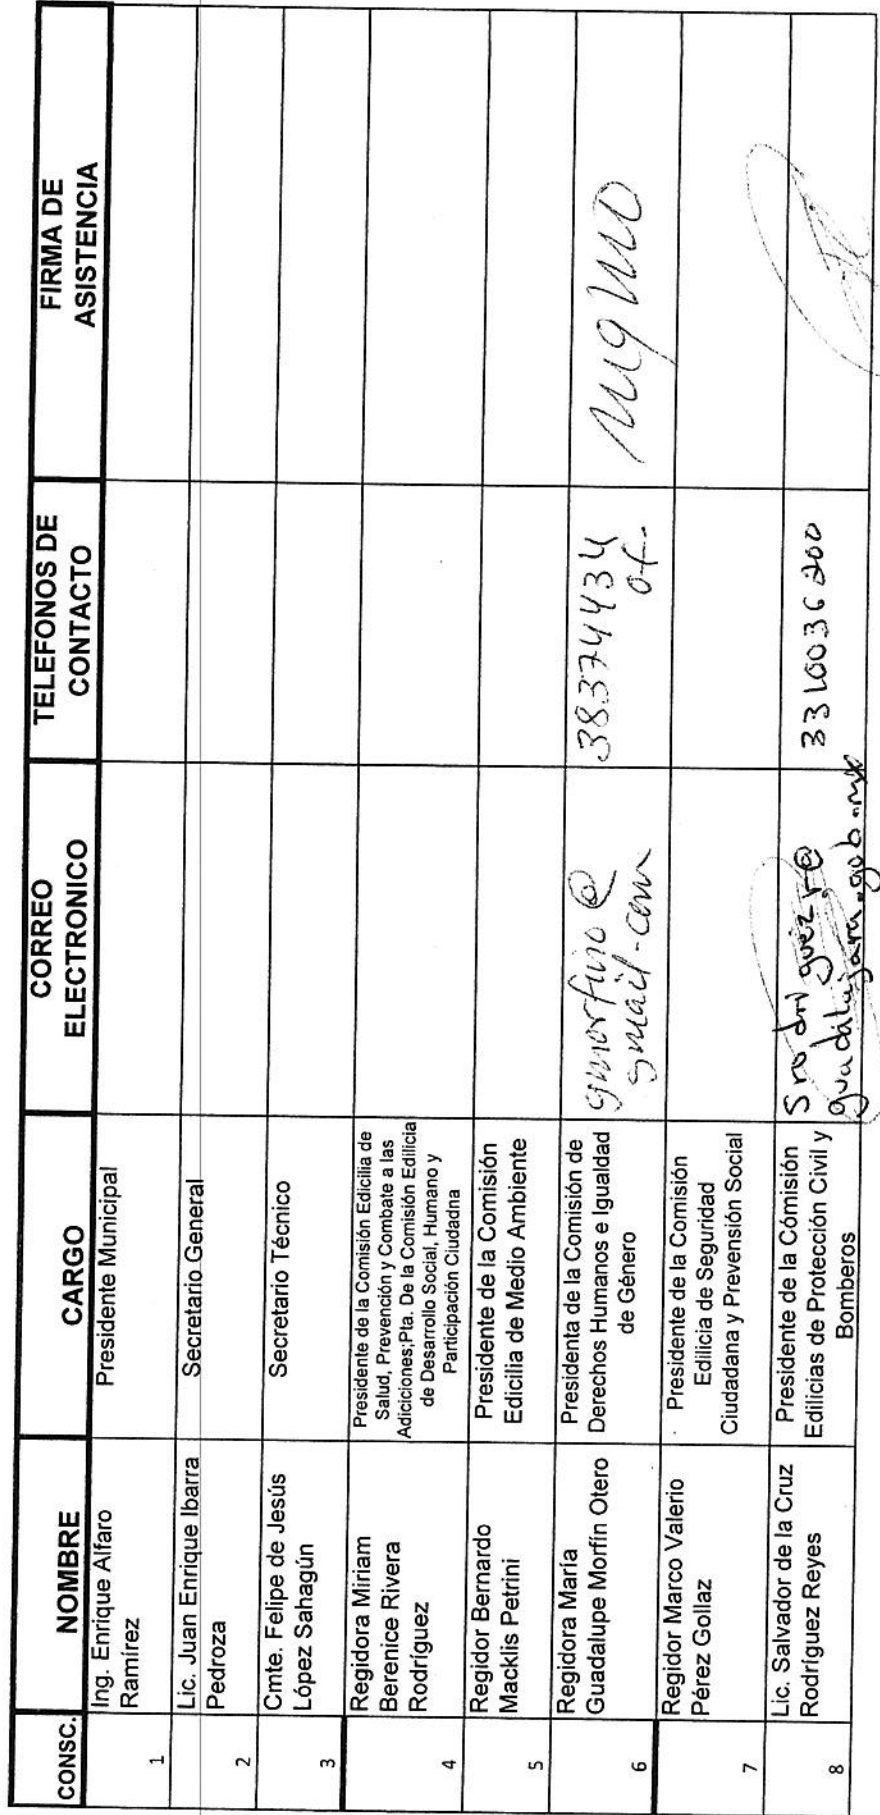 CONSC.
NOMBRE
CARGO
CORREO
ELECTRONICO
TELEFONOS DE
CONTACTO
FIRMA DE
ASISTENCIA
1
Ing. Enrique Alfaro
Ramírez
Presidente Municipal
2
Lic. Juan Enrique Ibarra
Pedroza
Secretario General
3
Cmte. Felipe de Jesús
López Sahagún
Secretario Técnico
4
Regidora Miriam
Berenice Rivera
Rodríguez
Presidente de la Comisión Edicilia de
Salud, Prevención y Combate a las
Adiciciones;Pta. De la Comisión Edilicia
de Desarrollo Social, Humano y
Participación Ciudadna
5
Regidor Bernardo
Macklis Petrini
Presidente de la Comisión
Edicilia de Medio Ambiente
6
Regidora María
Guadalupe Morfín Otero
Presidenta de la Comisión de
Derechos Humanos e Igualdad
de Género
gmorfino@
gmail.com
38374434
of.
7
Regidor Marco Valerio
Pérez Gollaz
Presidente de la Comisión
Edilicia de Seguridad
Ciudadana y Prevensión Social
8
Lic. Salvador de la Cruz
Rodríguez Reyes
Presidente de la Comisión
Edilicias de Protección Civil y
Bomberos
Srodriguez.r@
guadalajara.gob.mx
3310036200